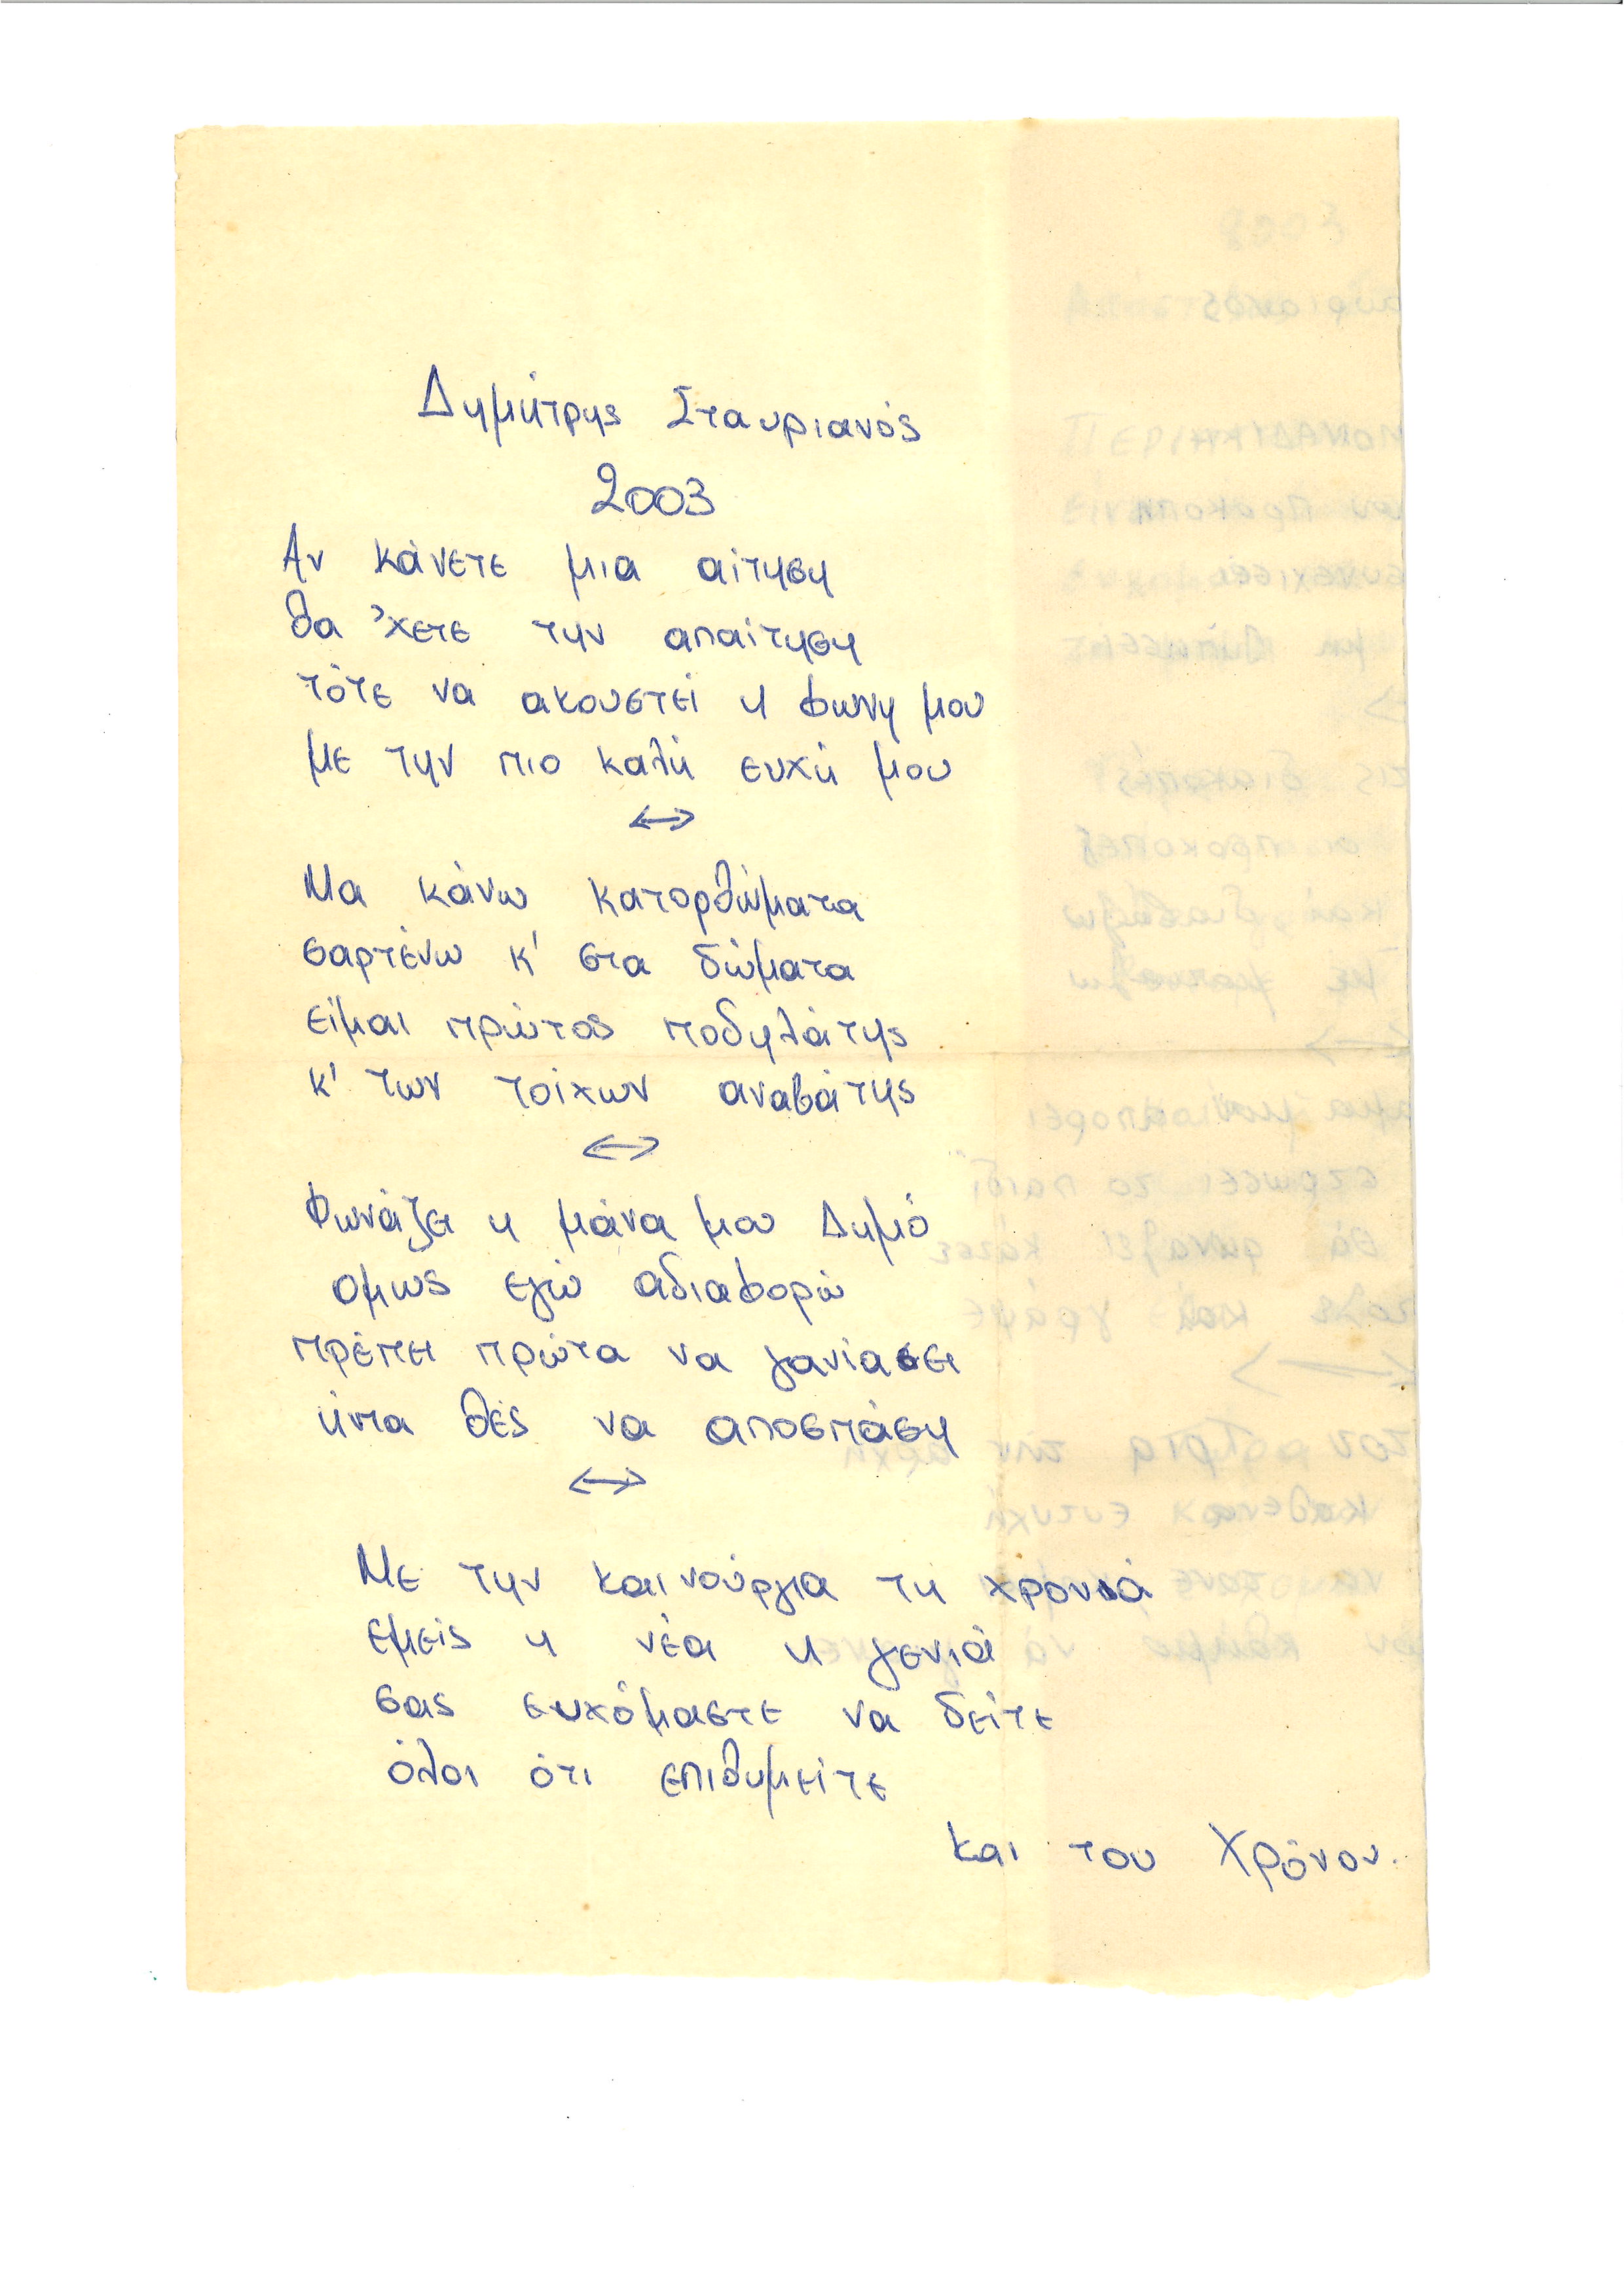 Δημήτρης Σταυριανός
2003
Αν κάνετε μια αίτηση
θα 'χετε την απαίτηση
τότε να ακουστεί η φωνη μου
με την πιο καλή ευχή μου
↔
Μα κάνω κατορθώματα
σαρτένω κ' στα δώματα
είμαι πρώτος ποδηλάτης
κ' των τοίχων αναβάτης
↔
Φωνάζει η μάνα μου Δημό
ομως εγώ αδιαφορώ
πρέπει πρώτα να γανίασει
ήντα θές να αποσπάση
↔
Με την καινούργια τη χρονιά
εμείς η νέα η γενιά
σας ευχόμαστε να δείτε
όλοι ότι επιθυμείτε
Και του Χρόνου.